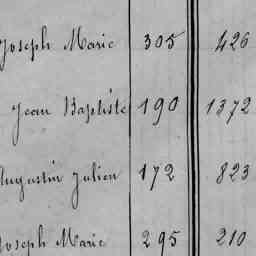 Joseph Marie 305 426
Jean Baptiste 190 1372
Augustin Julien 172 823
Joseph Marie 295 210